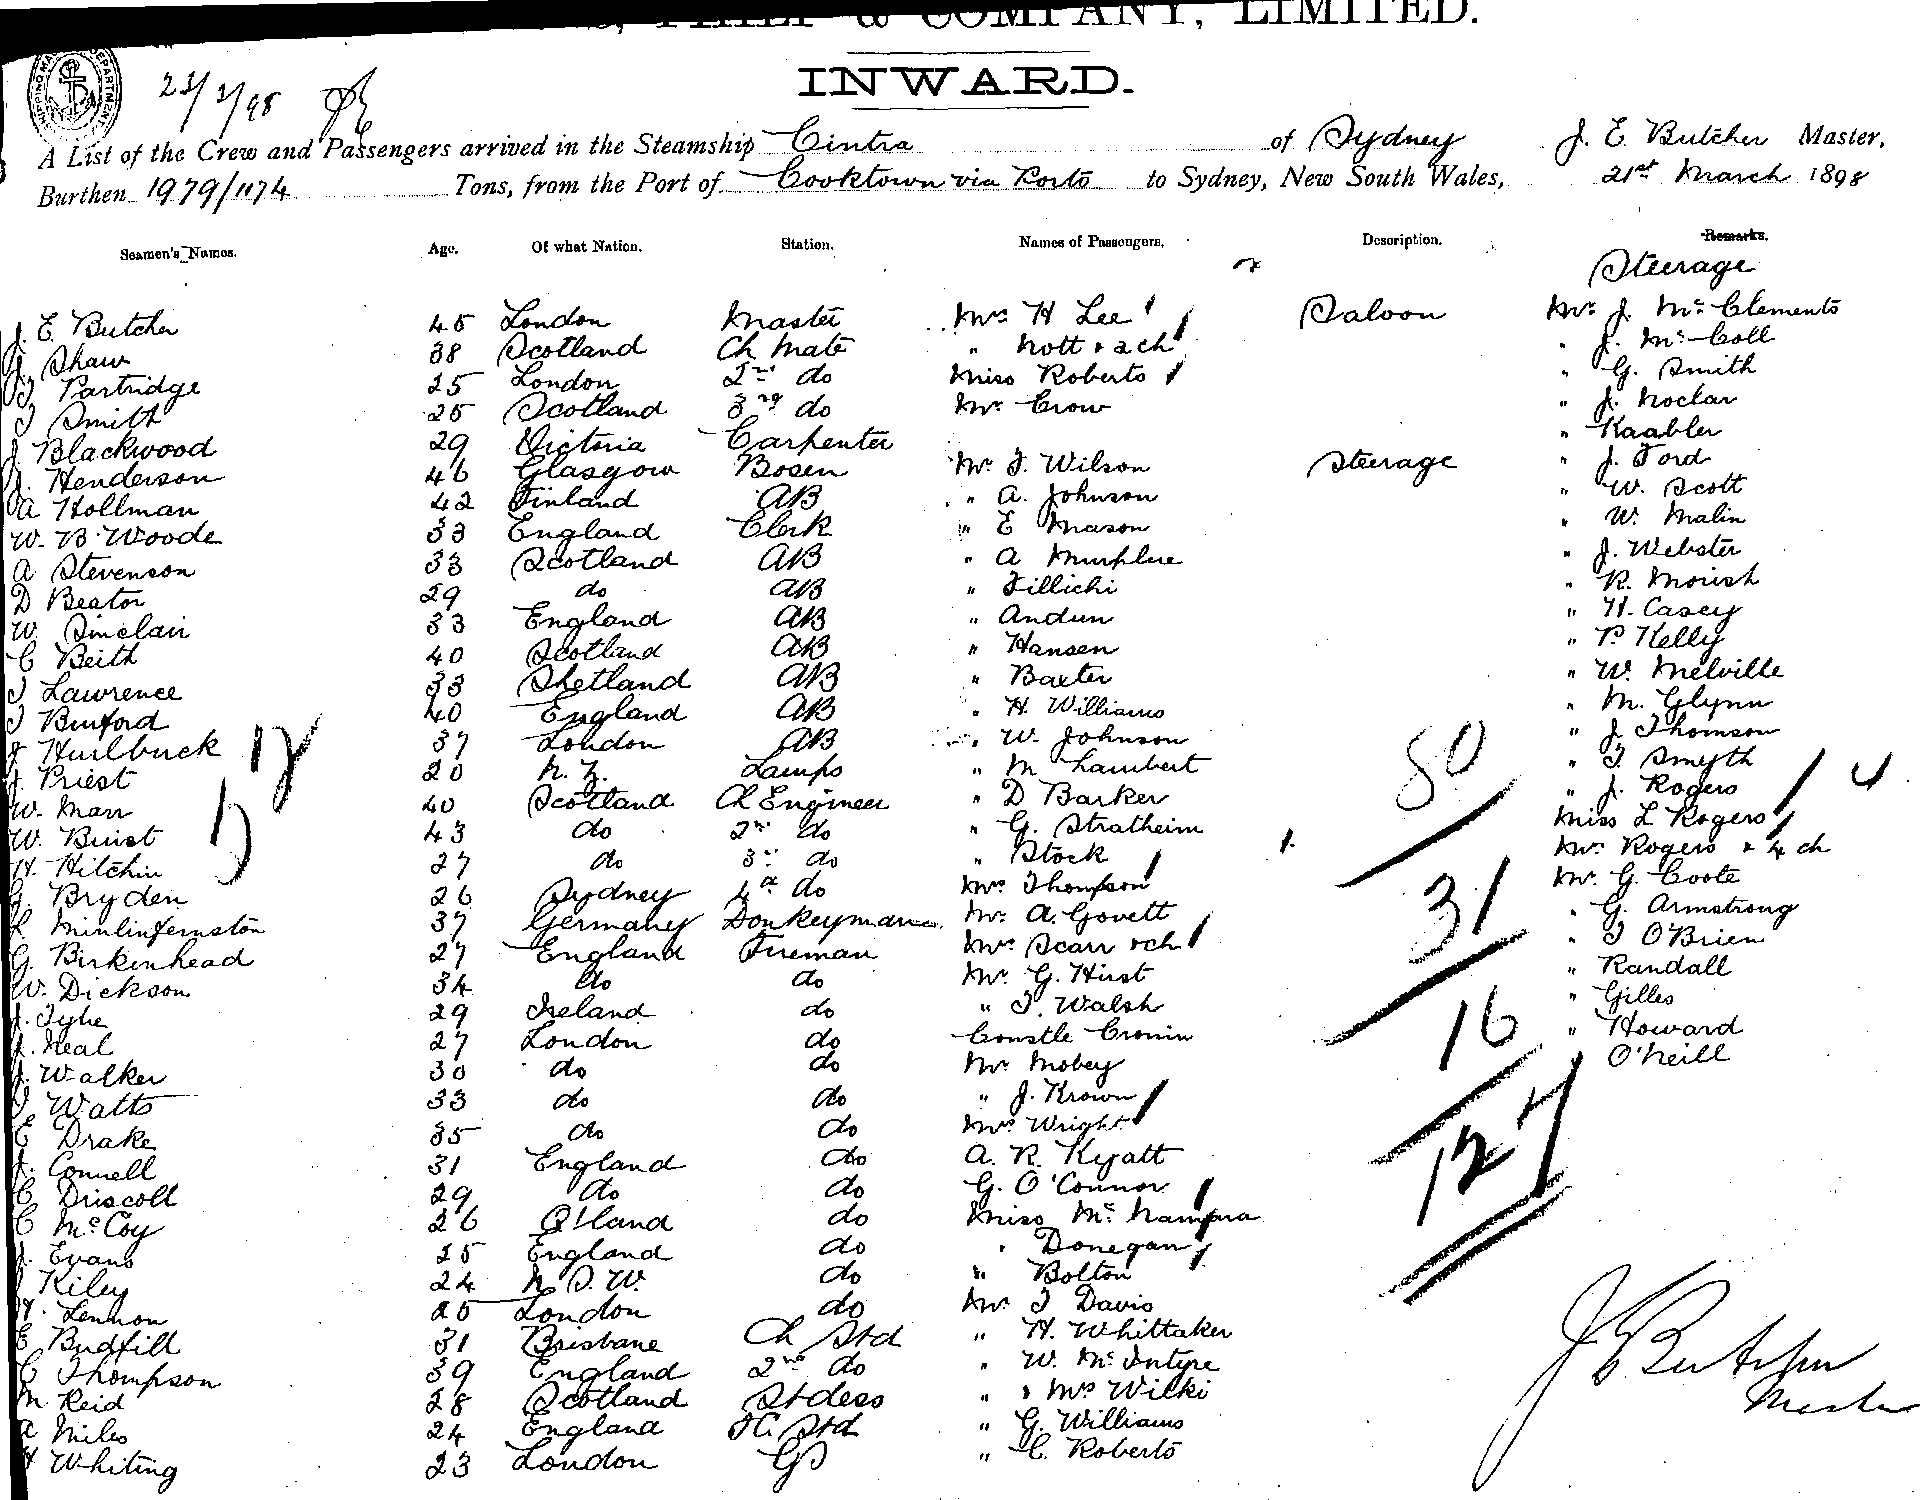 & COMPANY, LIMITED.
INWARD.
A List of the Crew and Passengers arrived in the Steamship Cintra of Sydney J. E. Butcher Master,
Burthen 1979/1174 Tons, from the Port of Cooktown via Ports to Sydney, New South Wales, 21st March 1898
Seamen's Names. Age. Of what Nation. Station. Names of Passengers. Description. Remarks.
Steerage
J. E. Butcher 45 London Master Mrs H Lee Saloon Mr J. McClements
Shaw 38 Scotland Ch Mate " Nott & 2 ch " J. McColl
Partridge 25 London 2nd do Miss Roberts " G. Smith
Smith 25 Scotland 3rd do Mr Crow " J. Noclar
J Blackwood 29 Victoria Carpenter " Kaabler
J. Henderson 46 Glasgow Bosen Mr J. Wilson Steerage " J. Ford
A Hollman 42 Finland AB " A. Johnson " W. Scott
W. B. Woode 33 England Clerk " E Mason " W. Malin
A Stevenson 33 Scotland AB " A " J. Webster
D Beaton 29 do AB " Fillichi " R. Morish
W. Sinclair 33 England AB " Andun " H. Casey
C Beith 40 Scotland AB " Hansen " P. Kelly
J Lawrence 33 Shetland AB " Baxter " W. Melville
J Binford 40 England AB " H Williams " M. Glynn
J Hurlbuck 37 London AB " W. Johnson " J Thomson
J. Priest 20 N. Z. Lamps " M Lambert " J. Smyth
W. Marr 40 Scotland Ch Engineer " D Barker " J. Rogers
W. Buist 43 do 2nd do " G. Stratheim Miss L Rogers
H. Hitchin 27 do 3rd do " Stock Mrs Rogers & 4 ch
G. Bryden 26 Sydney 4th do Mrs Thompson Mr G. Coote
37 Germany Donkeyman Mr A. Govett " G. Armstrong
G. Birkenhead 27 England Fireman Mrs Scarr & ch " J O'Brien
W. Dickson 34 do do Mr G. Hirst " Randall
J. Tyhe 29 Ireland do " J. Walsh " Gilles
J. Neal 27 London do Constle Cronin " Howard
J. Walker 30 do do Mr Mobey " O'Neill
J. Watts 33 do do " J. Krown
E Drake 35 do do Mrs Wright
J. Connell 31 England do A. R. Kyatt
C Driscoll 29 do do G. O'Connor
C McCoy 26 Q'land do Miss McNamara
J. Evans 25 England do " Donegan
J Kiley 24 N. S. W. do " Bolton
Lennon 25 London do Mr J Davis
E Budfill 31 Brisbane Ch Std " H. Whittaker
C Thompson 39 England 2nd do " W. McIntyre
M Reid 28 Scotland Stdess " & Mrs Wilki
A Miles 24 England Std " G. Williams
H Whiting 23 London GS " C. Roberts
80
31
16
127
J E Butcher
Master